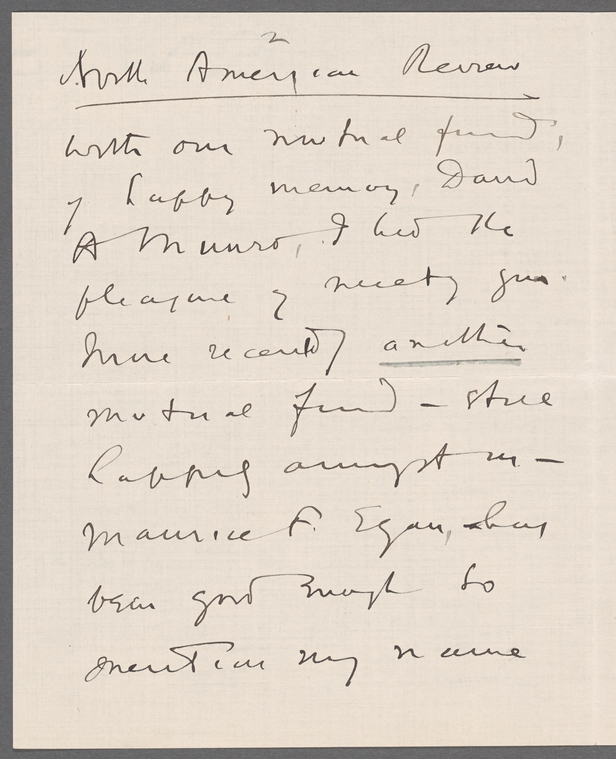 2
North American Review
with our mutual friend,
of happy memory, David
A Munro, I had the
pleasure of meeting you.
More recently another
mutual friend – still
happily amongst us –
Maurice F. Egan, has
been good enough to
mention my name